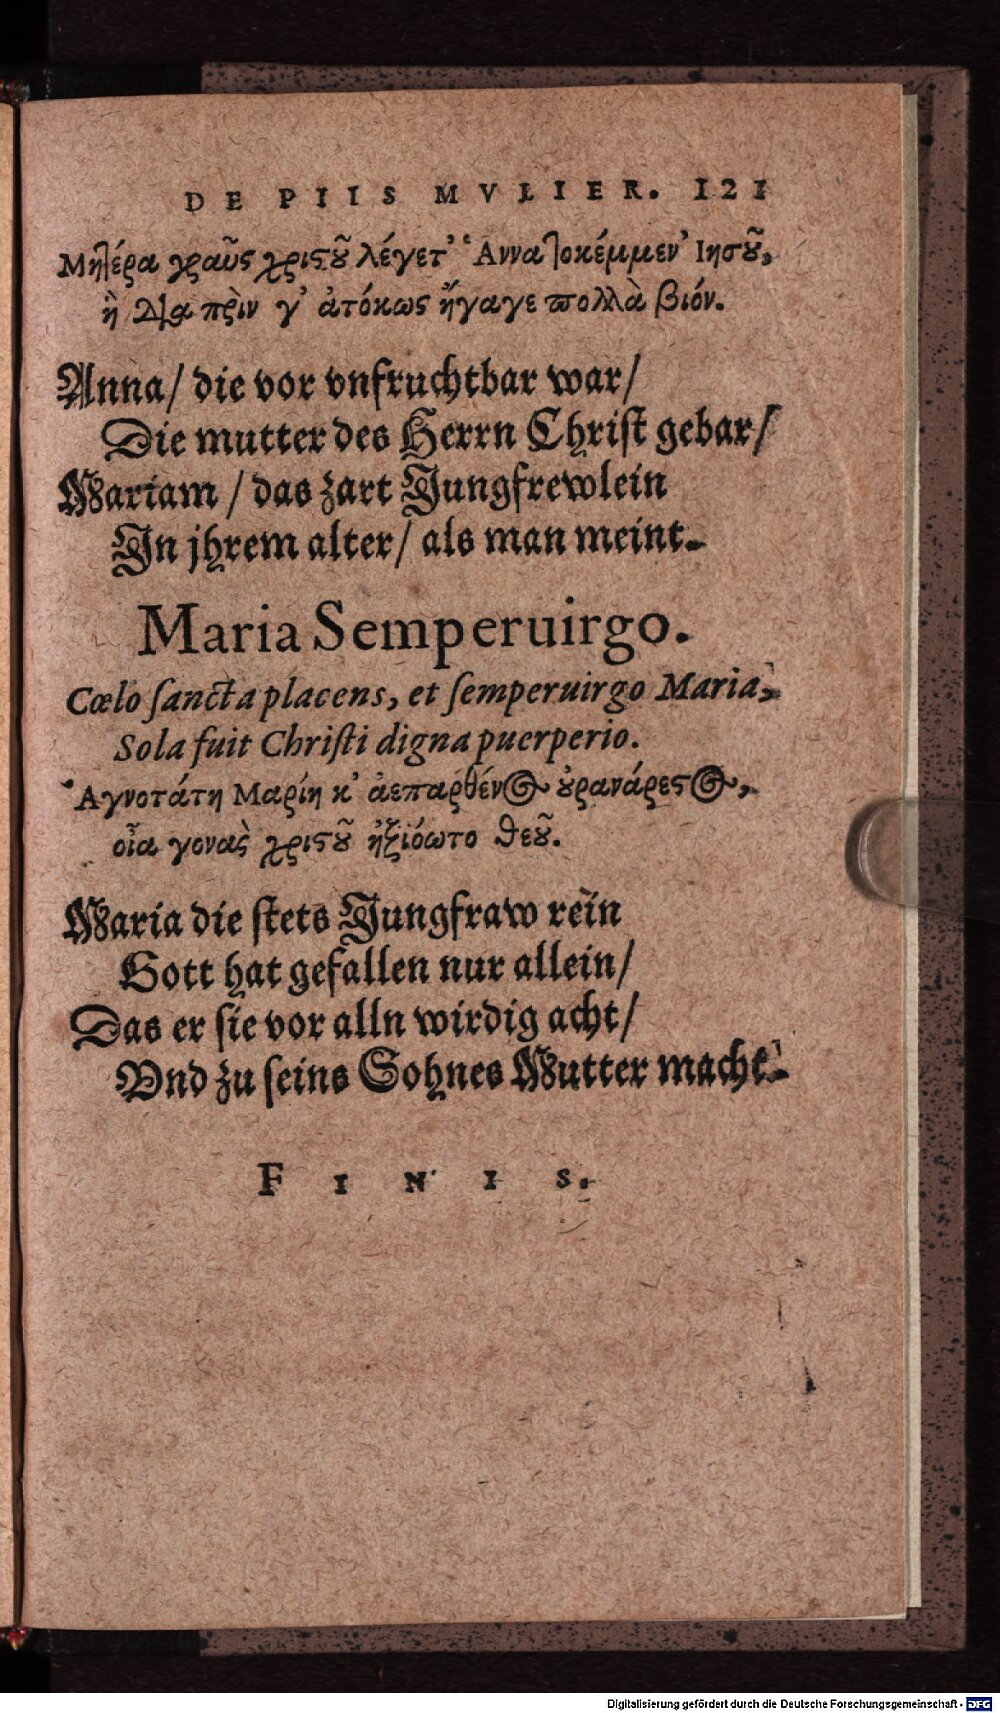 DE PIIS MVLIER. 121
Μητέρα γραῦς χριστοῦ λέγετ' Ἄννα τοκέμμεν' Ἰησοῦ,
ἣ πρὶν γ' ἀτόκως ἤγαγε πολλὰ βιόν.
Anna/ die vor vnfruchtbar war/
Die mutter des Herrn Christ gebar/
Mariam / das zart Jungfrewlein
In jhrem alter/ als man meint.
Maria Semperuirgo.
Cœlo ſancta placens, et ſemperuirgo Maria,
Sola fuit Chriſti digna puerperio.
Ἁγνοτάτη Μαρίη κ' ἀεπαρθένος οὐρανάρεστος,
οἵα γονὰς χριστοῦ ἠξιόωτο θεοῦ.
Maria die ſtets Jungfraw rein
Gott hat gefallen nur allein/
Das er ſie vor alln wirdig acht/
Vnd zu ſeins Sohnes Mutter macht.
FINIS.
Digitalisierung gefördert durch die Deutsche Forschungsgemeinschaft - DFG